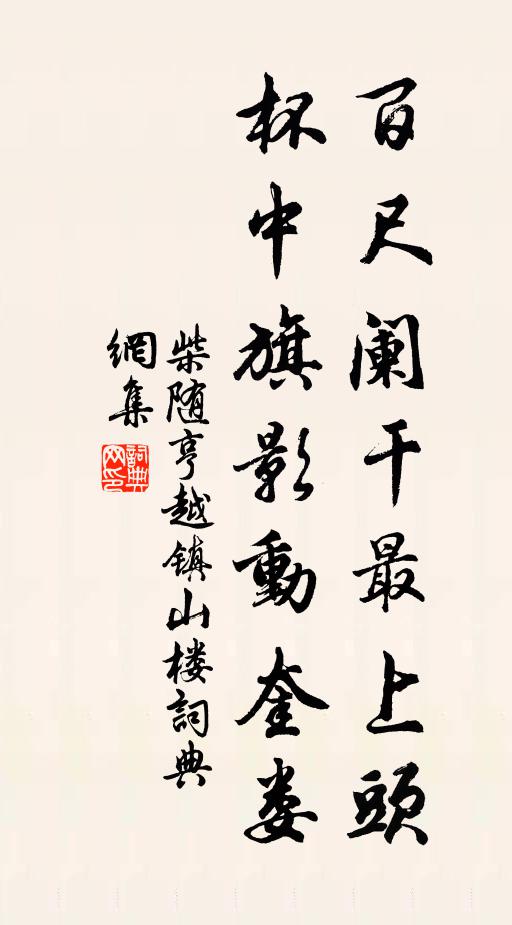 百尺阑干最上頭
杯中旗影動奎娄
柴随亨越镇山楼詞典
網集
詞典
网印